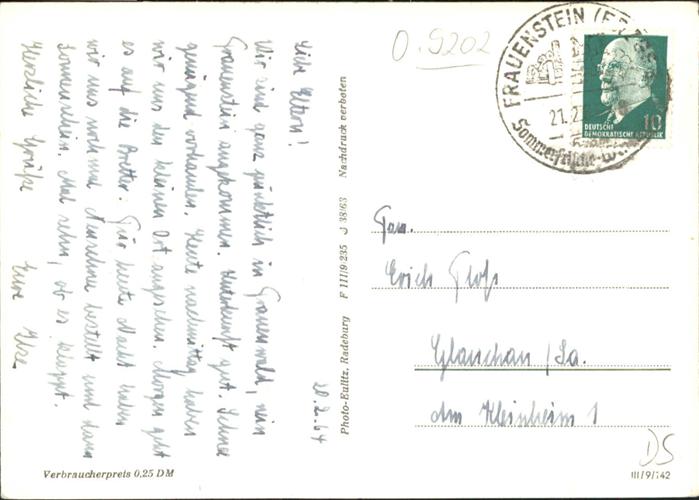 20.2.64
Liebe Eltern!
Wir sind ganz pünktlich in Frauenwald, nein
Frauenstein angekommen. Unterkunft gut. Schnee
genügend vorhanden. Heute nachmittag haben
wir uns den kleinen Ort angesehen. Morgen geht
es auf die Bretter. Für heute Nacht haben
wir uns noch mit bestellt und dann
Sonnenstein. Mal sehn, ob es klappt.
Herzliche Grüße Eure Ilse
Photo-Eulitz, Radeburg F III/9/235 J 38/63 Nachdruck verboten
Verbraucherpreis 0,25 DM
O.9202
FRAUENSTEIN (ERZ
21.2
Sommerfrische-W
DEUTSCHE
DEMOKRATISCHE REPUBLIK
10
Fam.
Erich Ploß
Glauchau/Sa.
Am Kleinheim 1
DS
III/9/142